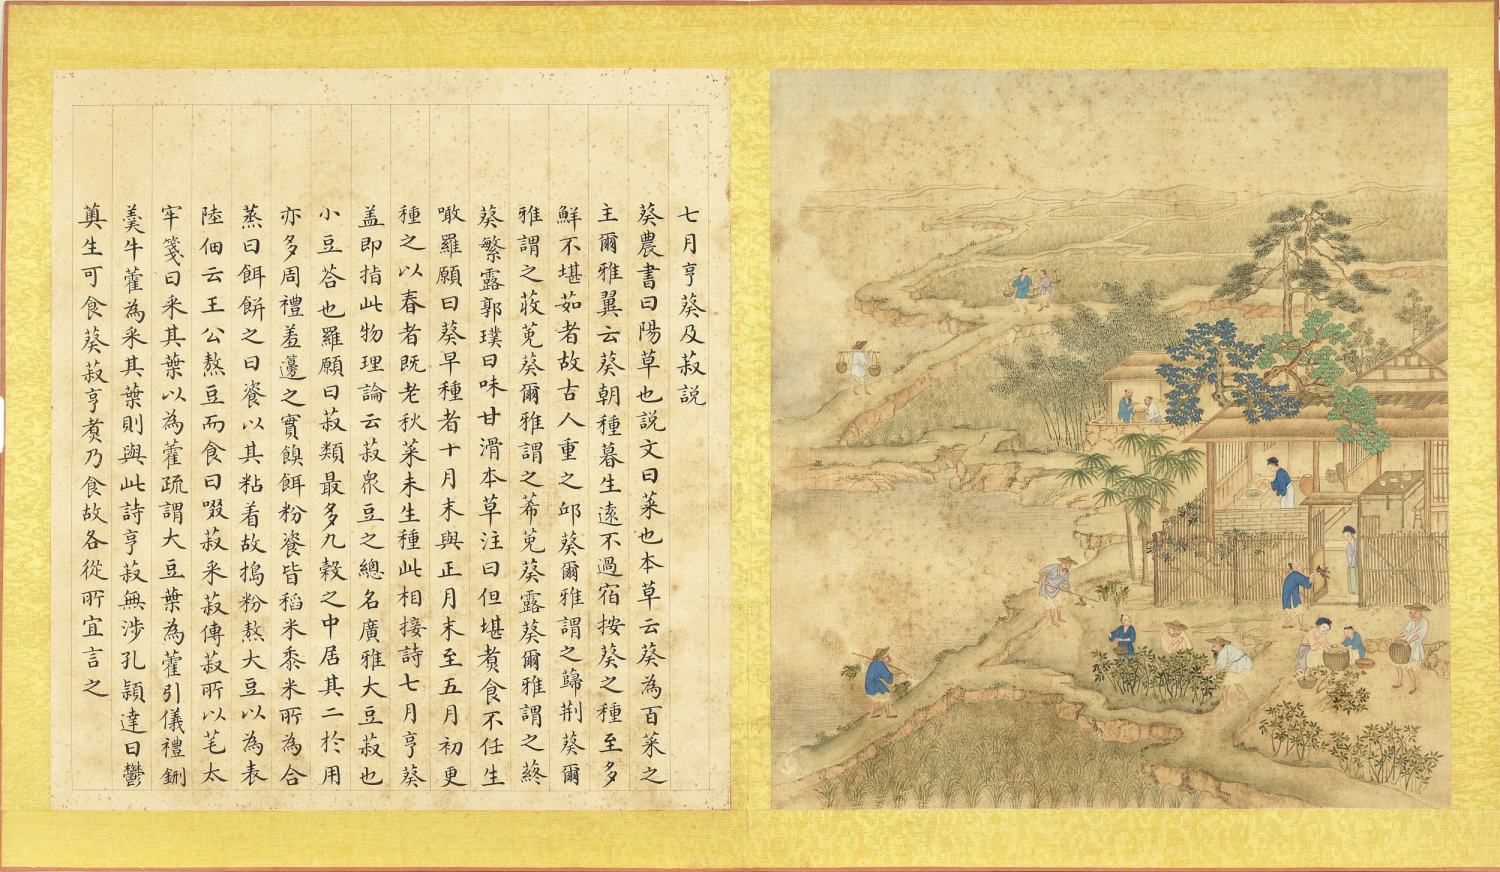 七月亨葵及菽説
葵農書曰陽草也説文曰菜也本草云葵為百菜之
主爾雅翼云葵朝種暮生遠不過宿按葵之種至多
鮮不堪茹者故古人重之邱葵爾雅謂之蘬荆葵爾
雅謂之荍莵葵爾雅謂之莃莵葵露葵爾雅謂之蔠
葵繁露郭璞曰味甘滑本草注曰但堪煑食不任生
噉羅願曰葵早種者十月末與正月末至五月初更
種之以春者既老秋菜未生種此相接詩七月亨葵
盖即指此物理論云菽衆豆之總名廣雅大豆菽也
小豆荅也羅願曰菽類最多九穀之中居其二於用
亦多周禮羞籩之實餱餌粉餈皆稻米黍米所為合
蒸曰餌餅之曰餈以其粘着故搗粉熬大豆以為表
陸佃云王公熬豆而食曰啜菽采菽傳菽所以芼太
牢箋曰采其葉以為藿疏謂大豆葉為藿引儀禮鉶
羹牛藿為采其葉則與此詩亨菽無涉孔頴達曰鬱
薁生可食葵菽亨煑乃食故各從所宜言之